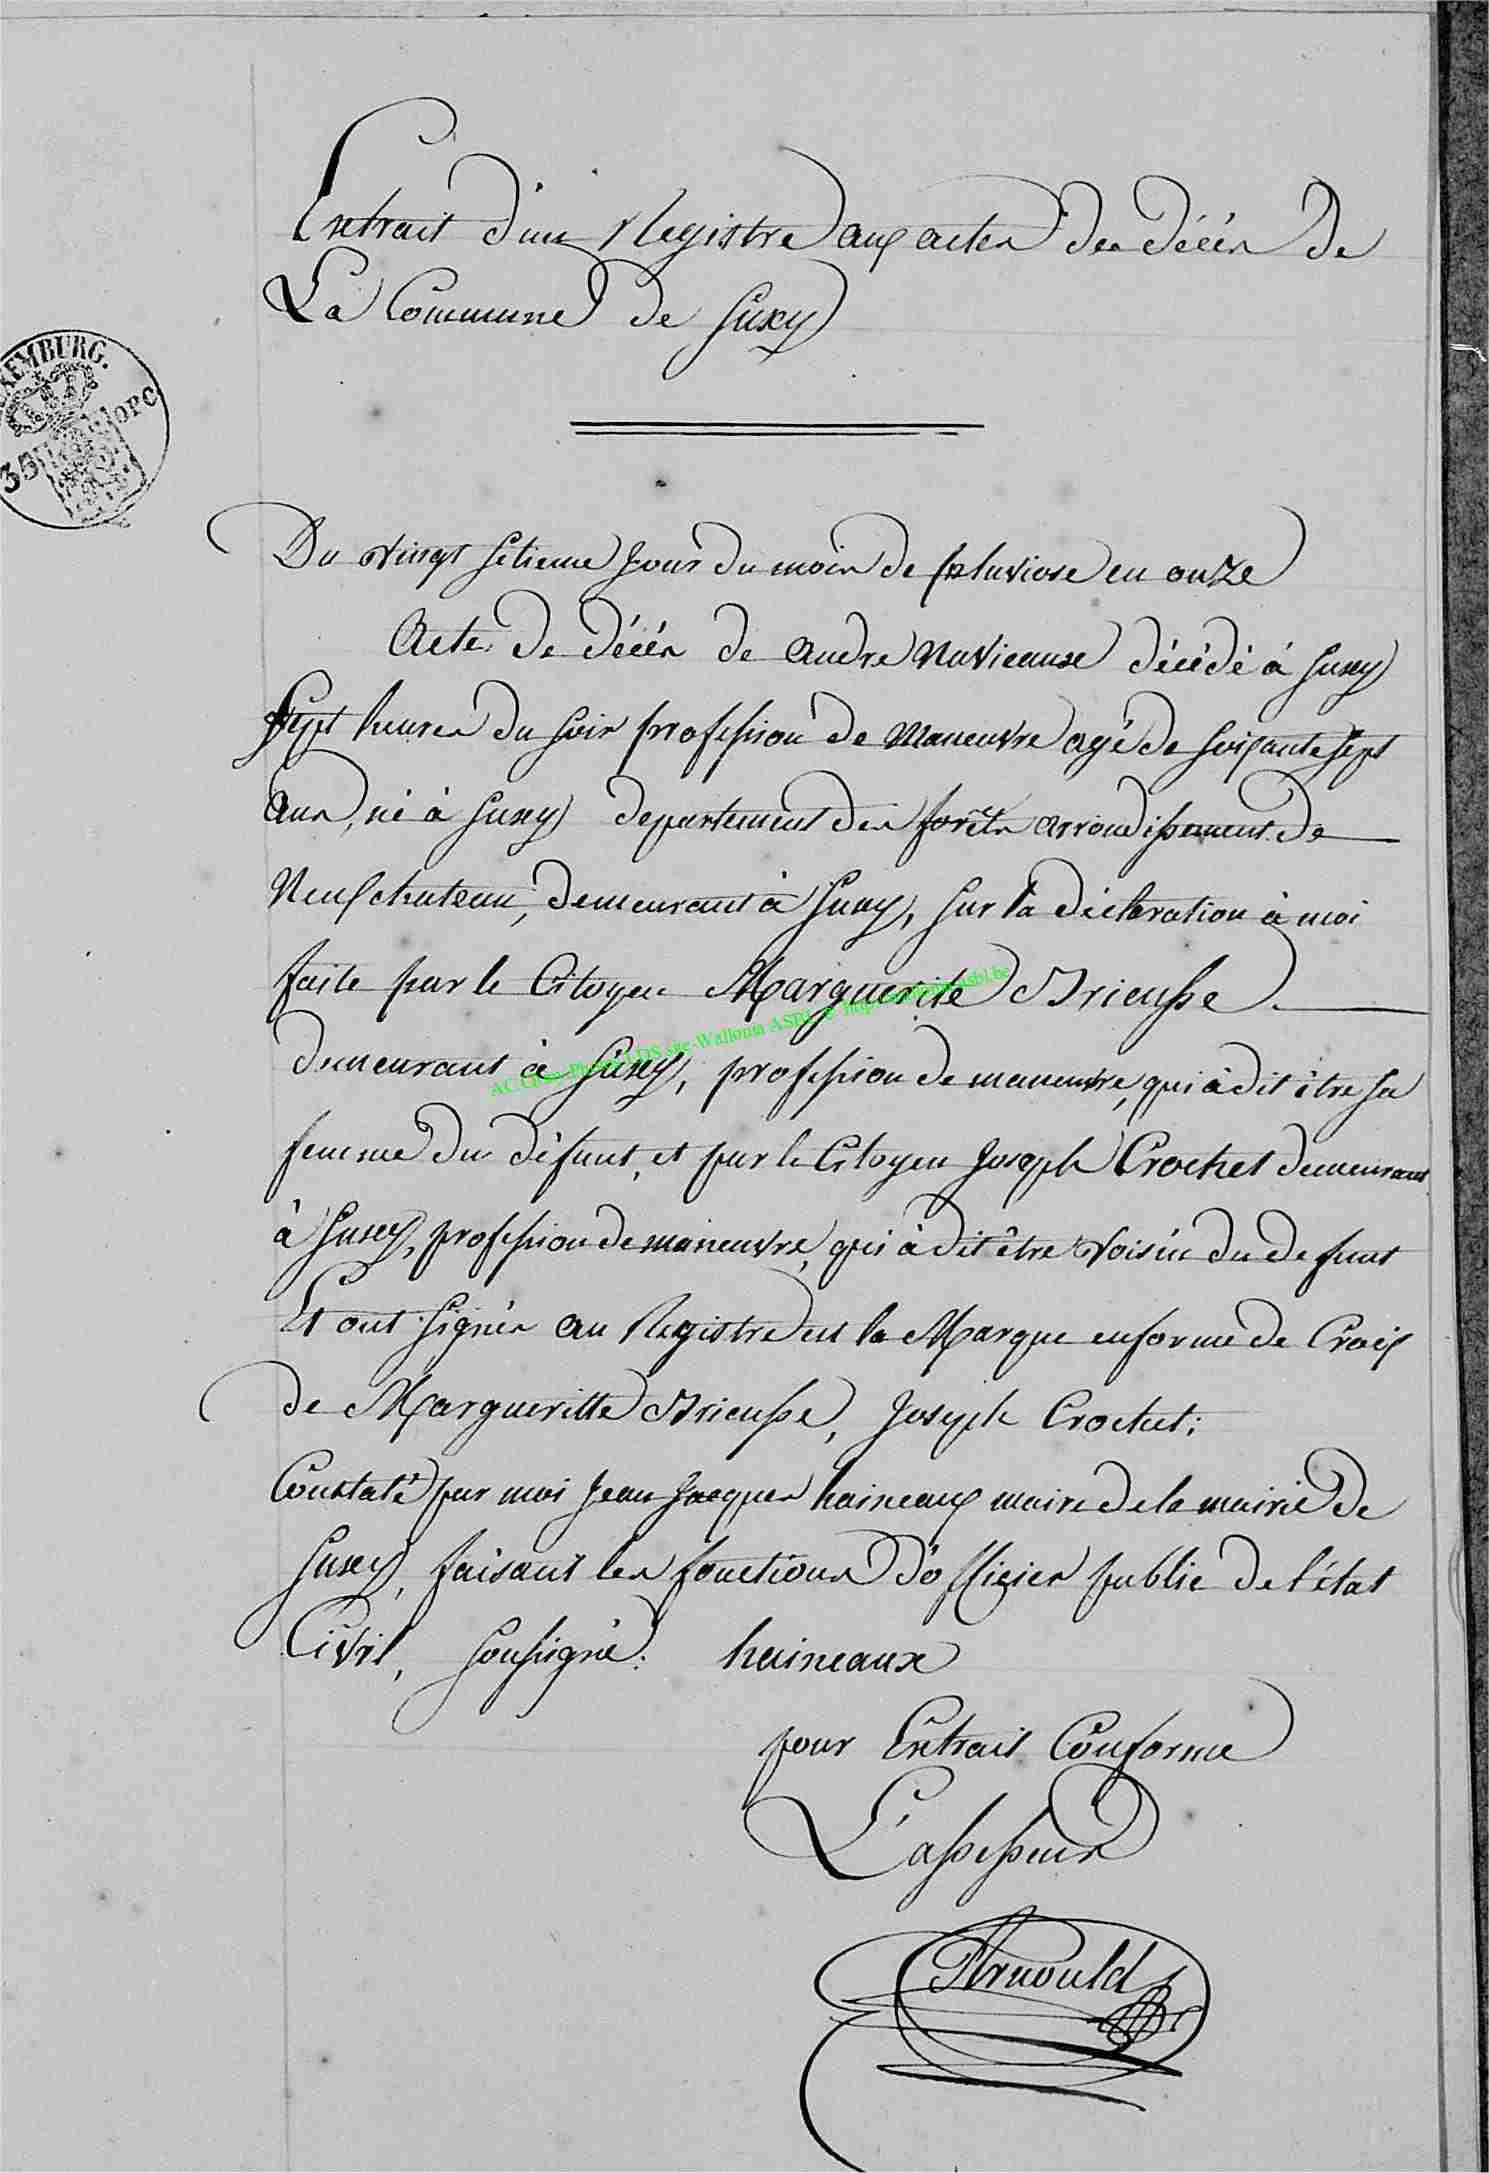 Extrait d'un Registre aux actes des décés de
La Commune de Suxy
LUXEMBURG.
35 OPC
Du vingt setieme jour du mois de pluviose en onze
Acte de décés de andre Naviceaux décédé à Suxy
Sept heures du soir profession de Maneuvre agé de soixante sept
ans, né à Suxy departement des forêts arrondissement de
Neufchateau, demeurant à Suxy, sur la déclaration à moi
faite par le Citoyen Marguerite Brieusse
demeurant à Suxy, profession de maneuvre, qui à dit être sa
femme du défunt, et par le Citoyen Joseph Crochet demeurant
à Suxy, profession de maneuvre, qui à dit être voisin du defunt
Et ont signés au Registre est la Marque enforme de Croix
de Margueritte Brieusse, Joseph Crochet;
Constaté par moi Jean Jacques haineaux maire de la mairie de
Suxy, faisant les fonctions d'officier public de l'état
Civil, soussigné: haineaux
pour Extrait Conforme
L'assesseur
Arnould